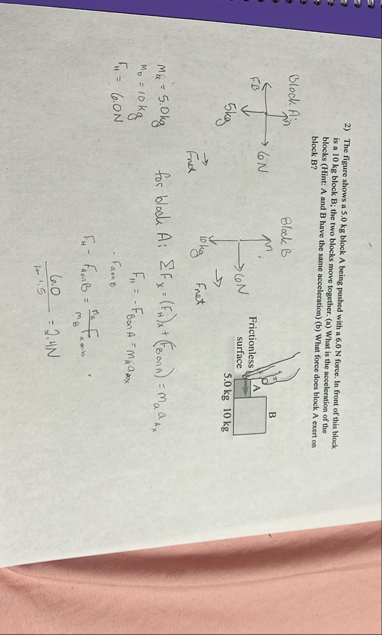 2) The figure shows a 5.0 kg block A being pushed with a 6.0 N force. In front of this block
is a 10 kg block B; the two blocks move together. (a) What is the acceleration of the
blocks (Hint: A and B have the same acceleration) (b) What force does block A exert on
block B?
Block A:
n
FB
6N
5kg
Fnet
Block B
n
6N
10kg
Fnet
B
A
Frictionless
surface
5.0 kg 10 kg
MA = 5.0kg
MB = 10kg
FH = 6.0N
for block A: ΣFx = (FH)x + (FBonA) = ma aAx
FH = - FBonA = mA aAx
- FAonB
FH - FAonB =
6.0
= 2.4N